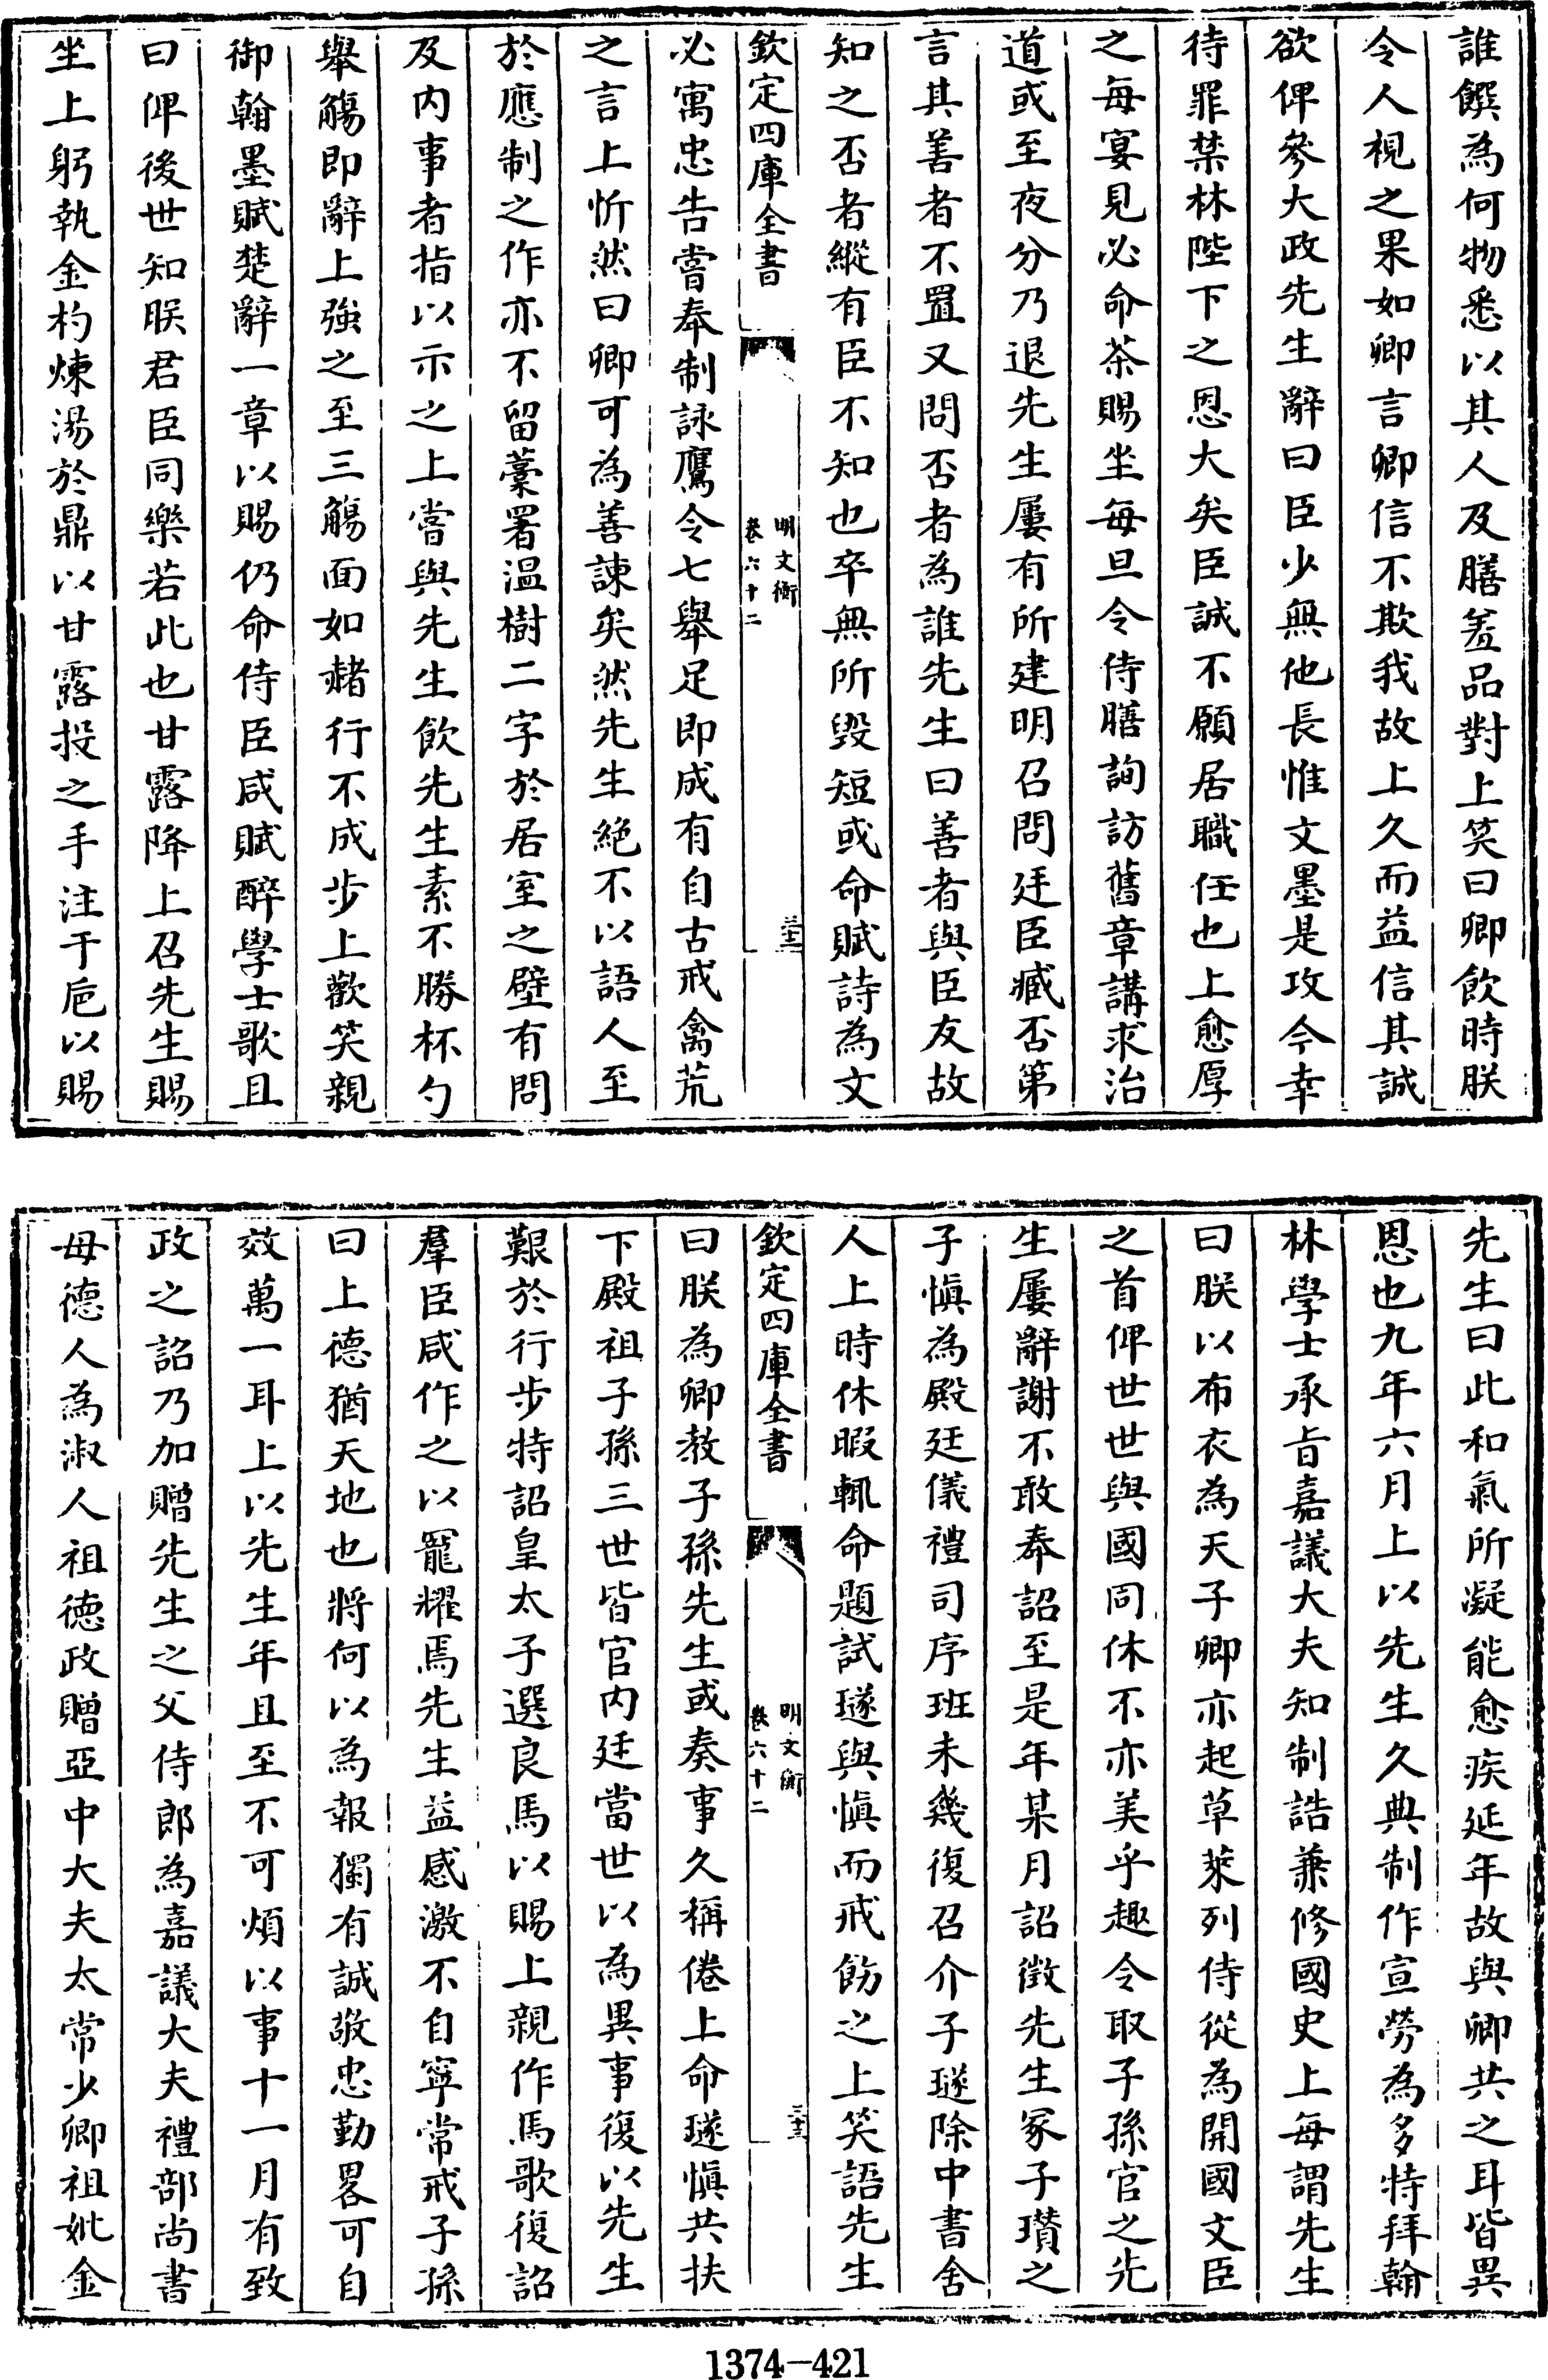 誰饌為何物悉以其人及膳羞品對上笑曰卿飲時朕
令人視之果如卿言卿信不欺我故上久而益信其誠
欲俾參大政先生辭曰臣少無他長惟文墨是攻今幸
待罪禁林陛下之恩大矣臣誠不願居職任也上愈厚
之每宴見必命茶賜坐每旦令侍膳詢訪舊章講求治
道或至夜分乃退先生屢有所建明召問廷臣臧否第
言其善者不置又問否者為誰先生曰善者與臣友故
知之否者縱有臣不知也卒無所毀短或命賦詩為文
欽定四庫全書
明文衡
卷六十二
三十二
必寓忠告嘗奉制詠鷹令七舉足即成有自古戒禽荒
之言上忻然曰卿可為善諫矣然先生絕不以語人至
於應制之作亦不留藁署溫樹二字於居室之壁有問
及內事者指以示之上嘗與先生飲先生素不勝杯勺
舉觴即辭上強之至三觴面如赭行不成步上歡笑親
御翰墨賦楚辭一章以賜仍命侍臣咸賦醉學士歌且
曰俾後世知朕君臣同樂若此也甘露降上召先生賜
坐上躬執金杓煉湯於鼎以甘露投之手注于巵以賜
先生曰此和氣所凝能愈疾延年故與卿共之耳皆異
恩也九年六月上以先生久典制作宣勞為多特拜翰
林學士承旨嘉議大夫知制誥兼修國史上每謂先生
曰朕以布衣為天子卿亦起草萊列侍從為開國文臣
之首俾世世與國同休不亦美乎趣令取子孫官之先
生屢辭謝不敢奉詔至是年某月詔徵先生冢子瓚之
子愼為殿廷儀禮司序班未幾復召介子璲除中書舍
人上時休暇輒命題試璲與愼而戒飭之上笑語先生
欽定四庫全書
明文衡
卷六十二
三十三
曰朕為卿教子孫先生或奏事久稱倦上命璲愼共扶
下殿祖子孫三世皆官內廷當世以為異事復以先生
艱於行步特詔皇太子選良馬以賜上親作馬歌復詔
羣臣咸作之以寵耀焉先生益感激不自寧常戒子孫
曰上德猶天地也將何以為報獨有誠敬忠勤畧可自
效萬一耳上以先生年且至不可煩以事十一月有致
政之詔乃加贈先生之父侍郎為嘉議大夫禮部尚書
母德人為淑人祖德政贈亞中大夫太常少卿祖妣金
1374-421